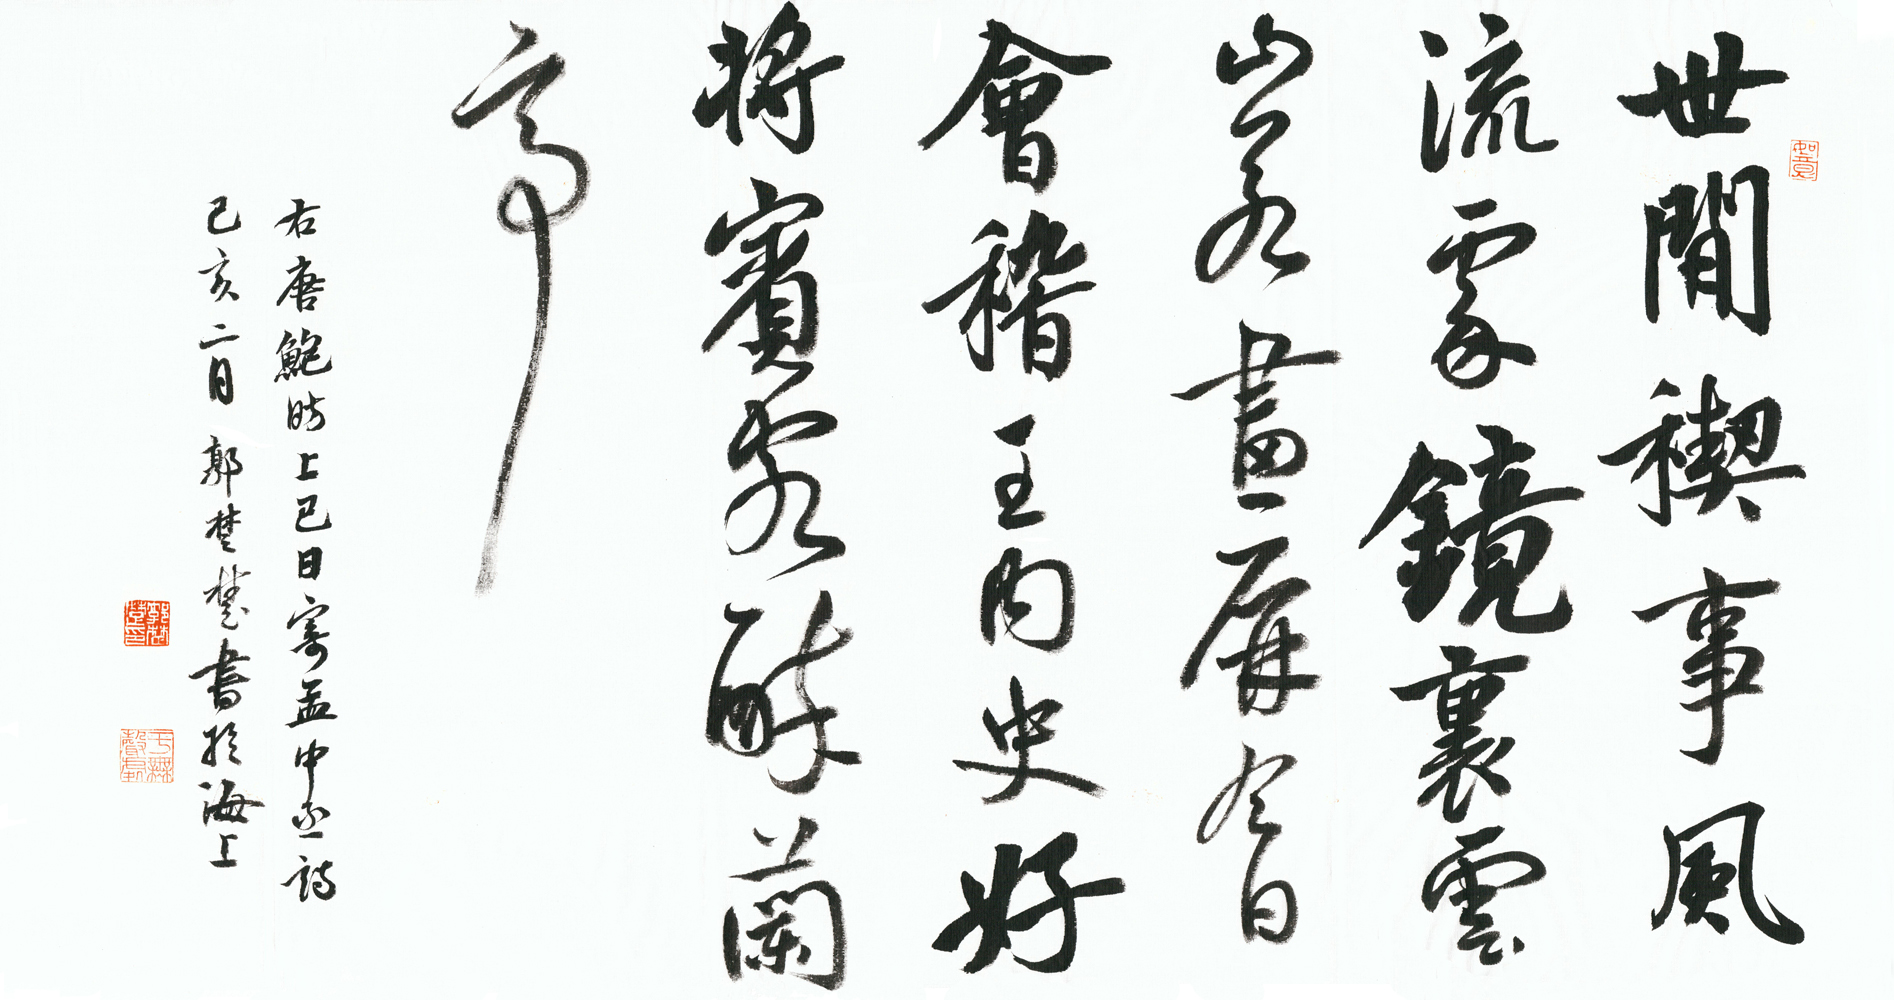 世間禊事風
流處鏡裏雲
山若畫屏今日
會稽王內史好
將賓客醉蘭
亭
右唐鮑昉上巳日寄孟中丞詩
己亥二月郭楚楚書於海上
如意